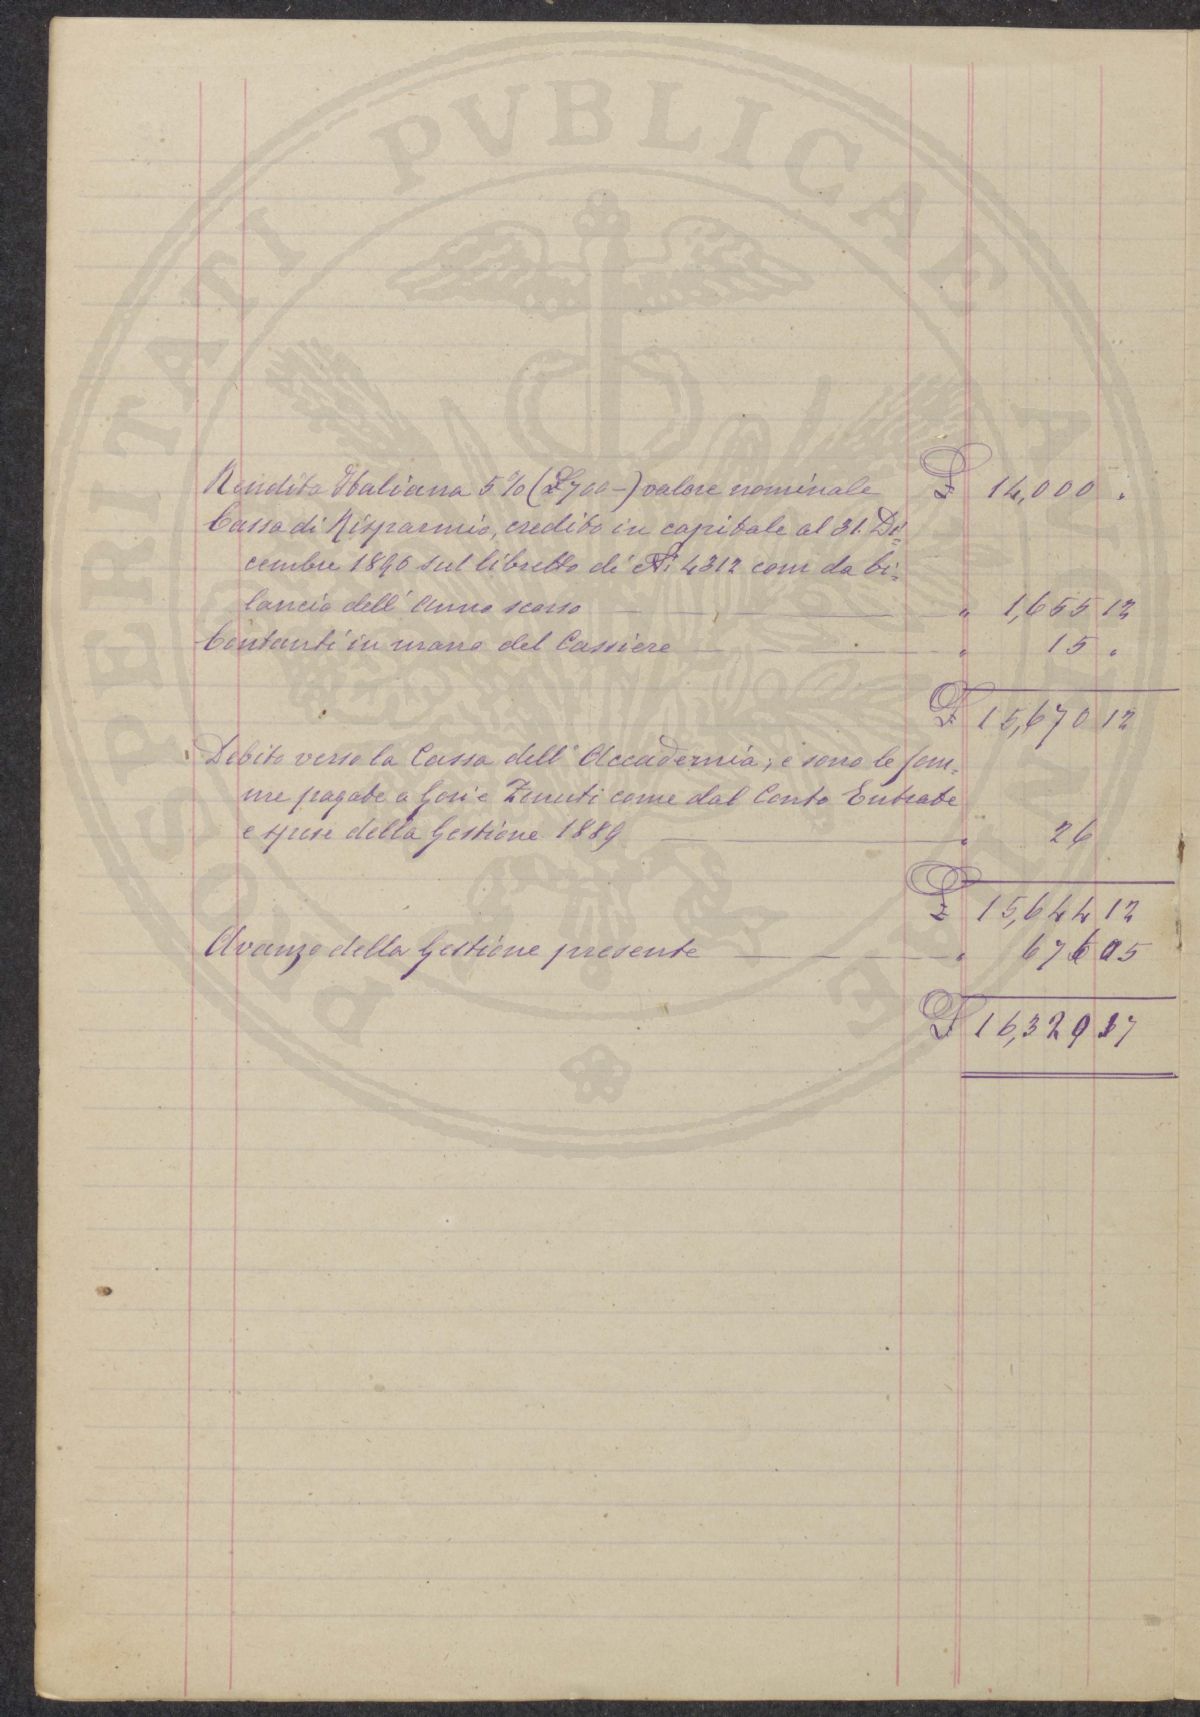 PROSPERITATI PVBLICAE
Rendita Italiana 5% (£700-) valore nominale £ 14,000 "
Cassa di Risparmio, credito in capitale al 31. Di=
cembre 1890 sul libretto di N: 4312 come da bi=
lancio dell' Anno scorso " 1,655 12
Contanti in mano del Cassiere " 15 "
£ 15,670 12
Debito verso la Cassa dell' Accademia; e sono le som=
me pagate a Gori e Zenuti come dal Conto Entrate
e spese della Gestione 1889 " 26
£ 15,644 12
Avanzo della Gestione presente "
£ 16,329 37